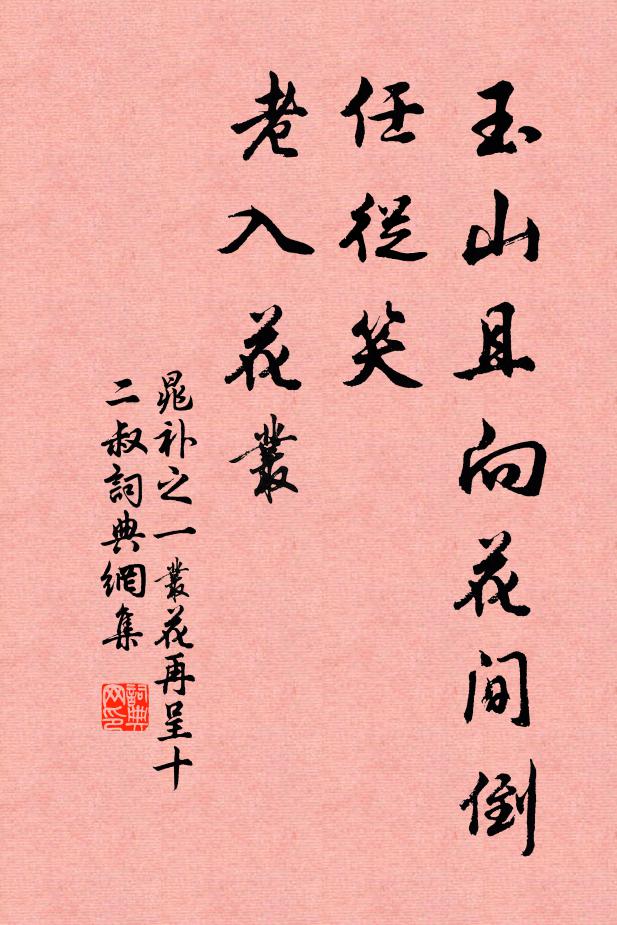 玉山且向花间倒
任從笑
老入花叢
晁补之一叢花再呈十
二叔詞典網集
詞典
网印